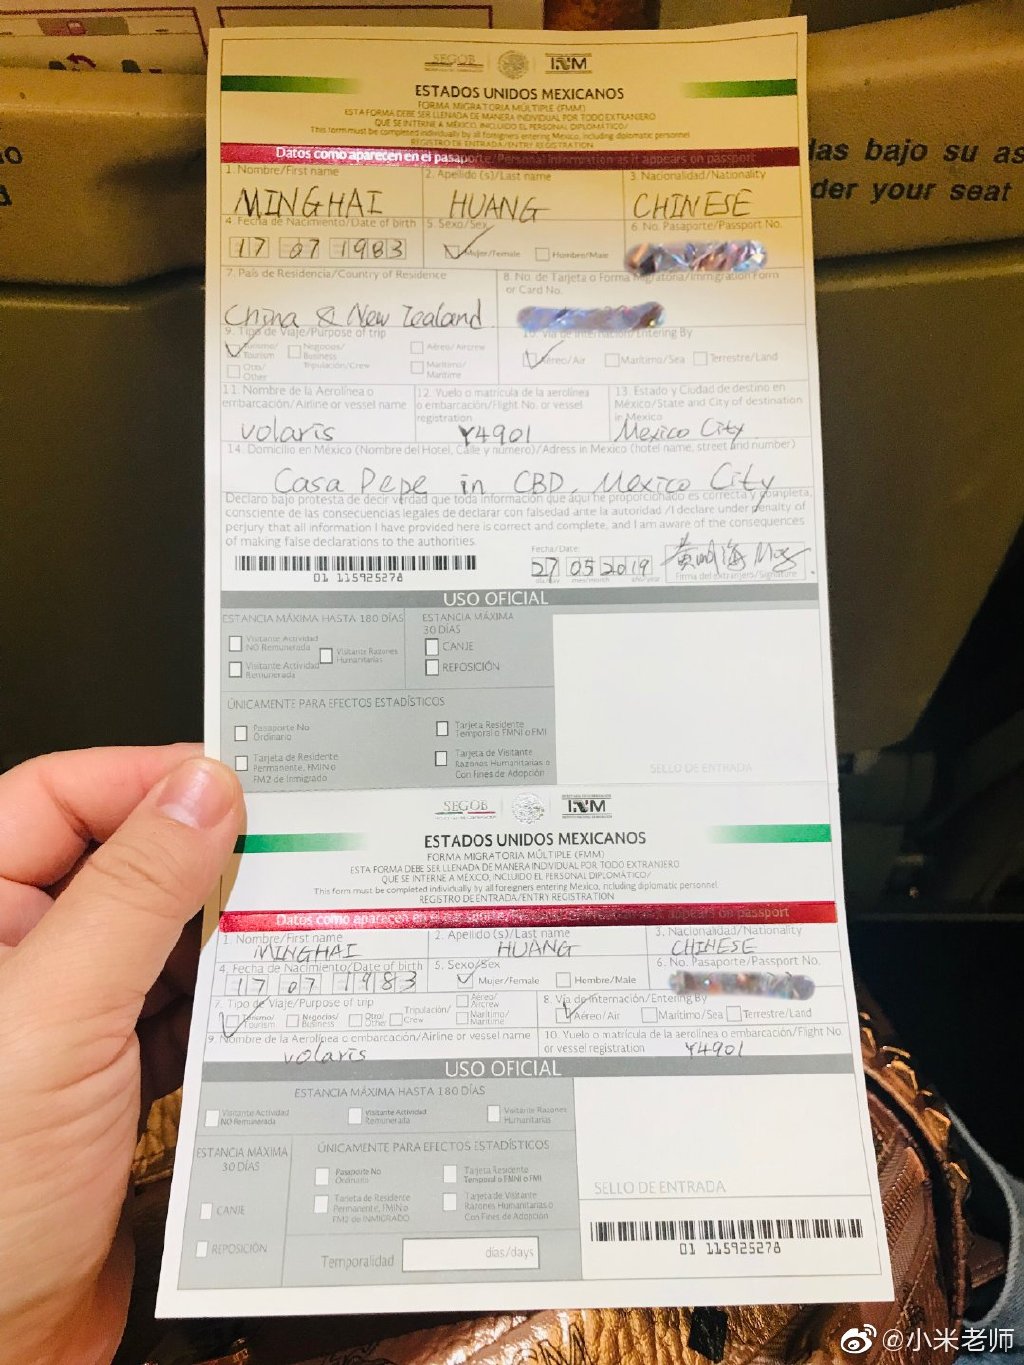 SEGOB
INM
ESTADOS UNIDOS MEXICANOS
FORMA MIGRATORIA MÚLTIPLE (FMM)
ESTA FORMA DEBE SER LLENADA DE MANERA INDIVIDUAL POR TODO EXTRANJERO
QUE SE INTERNE A MÉXICO, INCLUIDO EL PERSONAL DIPLOMÁTICO/
This form must be completed individually by all foreigners entering Mexico, including diplomatic personnel
REGISTRO DE ENTRADA/ENTRY REGISTRATION
Datos como aparecen en el pasaporte/Personal information as it appears on passport
1. Nombre/First name 2. Apellido (s)/Last name 3. Nacionalidad/Nationality
MINGHAI HUANG CHINESE
4. Fecha de Nacimiento/Date of birth 5. Sexo/Sex 6. No. Pasaporte/Passport No.
17 07 1983 Mujer/Female Hombre/Male
7. País de Residencia/Country of Residence 8. No. de Tarjeta o Forma Migratoria/Immigration Form
or Card No.
China & New Zealand
9. Tipo de Viaje/Purpose of trip 10. Vía de Internación/Entering By
Turismo/Tourism Negocios/Business Tripulación/Crew Aéreo/Aircrew Aéreo/Air Marítimo/Sea Terrestre/Land
Otro/Other Marítimo/Maritime
11. Nombre de la Aerolínea o 12. Vuelo o matrícula de la aerolínea 13. Estado y Ciudad de destino en
embarcación/Airline or vessel name o embarcación/Flight No. or vessel México/State and City of destination
registration in Mexico
volaris Y4901 Mexico City
14. Domicilio en México (Nombre del Hotel, Calle y número)/Adress in Mexico (hotel name, street and number)
Casa Pepe in CBD, Mexico City
Declaro bajo protesta de decir verdad que toda información que aquí he proporcionado es correcta y completa,
consciente de las consecuencias legales de declarar con falsedad ante la autoridad /I declare under penalty of
perjury that all information I have provided here is correct and complete, and I am aware of the consequences
of making false declarations to the authorities.
Fecha/Date:
27 05 2019 黄明海
día/day mes/month año/year Firma del extranjero/Signature
01 115925278
USO OFICIAL
ESTANCIA MÁXIMA HASTA 180 DÍAS ESTANCIA MÁXIMA
30 DÍAS
Visitante Actividad NO Remunerada Visitante Razones Humanitarias CANJE
Visitante Actividad Remunerada REPOSICIÓN
ÚNICAMENTE PARA EFECTOS ESTADÍSTICOS
Pasaporte No Ordinario Tarjeta Residente Temporal o FMNI o FMI
Tarjeta de Residente Permanente, FMIN o FM2 de Inmigrado Tarjeta de Visitante Razones Humanitarias o Con Fines de Adopción
SELLO DE ENTRADA
SEGOB
INM
ESTADOS UNIDOS MEXICANOS
FORMA MIGRATORIA MÚLTIPLE (FMM)
ESTA FORMA DEBE SER LLENADA DE MANERA INDIVIDUAL POR TODO EXTRANJERO
QUE SE INTERNE A MÉXICO, INCLUIDO EL PERSONAL DIPLOMÁTICO/
This form must be completed individually by all foreigners entering Mexico, including diplomatic personnel
REGISTRO DE ENTRADA/ENTRY REGISTRATION
Datos como aparecen en el pasaporte/ appears on passport
1. Nombre/First name 2. Apellido (s)/Last name 3. Nacionalidad/Nationality
MINGHAI HUANG CHINESE
4. Fecha de Nacimiento/Date of birth 5. Sexo/Sex 6. No. Pasaporte/Passport No.
17 07 1983 Mujer/Female Hombre/Male
7. Tipo de Viaje/Purpose of trip 8. Vía de Internación/Entering By
Turismo/Tourism Negocios/Business Otro/Other Tripulación/Crew Aéreo/Aircrew Marítimo/Maritime Aéreo/Air Marítimo/Sea Terrestre/Land
9. Nombre de la Aerolínea o embarcación/Airline or vessel name 10. Vuelo o matrícula de la aerolínea o embarcación/Flight No.
or vessel registration
volaris Y4901
USO OFICIAL
ESTANCIA MÁXIMA HASTA 180 DÍAS
Visitante Actividad NO Remunerada Visitante Actividad Remunerada Visitante Razones Humanitarias
ESTANCIA MÁXIMA
30 DÍAS
CANJE
REPOSICIÓN
ÚNICAMENTE PARA EFECTOS ESTADÍSTICOS
Pasaporte No Ordinario Tarjeta Residente Temporal o FMNI o FMI
Tarjeta de Residente Permanente, FMIN o FM2 de INMIGRADO Tarjeta de Visitante Razones Humanitarias o Con Fines de Adopción
Temporalidad días/days
SELLO DE ENTRADA
01 115925278
las bajo su as
der your seat
@小米老师